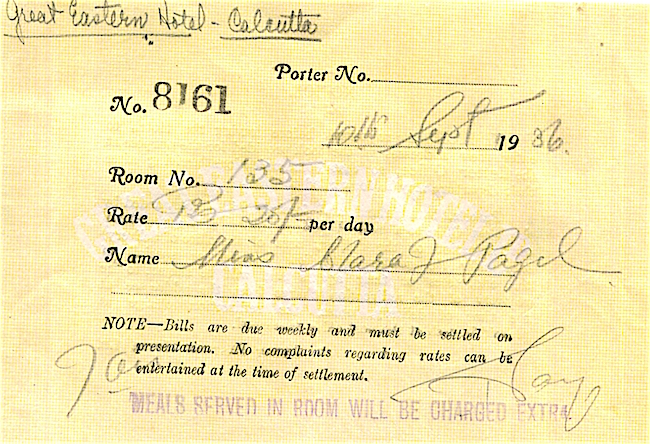 Great Eastern Hotel - Calcutta
Porter No.
No. 8161
10th Sept 1936.
Room No. 135
Rate Rs 20/- per day
Name Miss Clara J Pagel
GREAT EASTERN HOTEL
CALCUTTA
NOTE—Bills are due weekly and must be settled on
presentation. No complaints regarding rates can be
entertained at the time of settlement.
MEALS SERVED IN ROOM WILL BE CHARGED EXTRA.